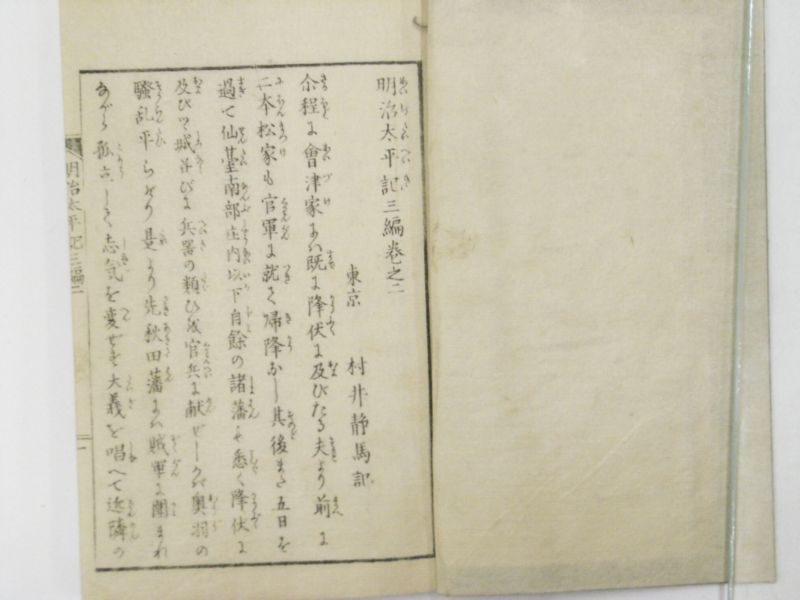 明治太平記三編巻之二
東京　村井静馬記
尒程に會津家にハ既に降伏に及びたる夫より前に
二本松家も官軍に就て帰降なし其後また五日を
過て仙䑓南部庄内以下自餘の諸藩も悉く降伏に
及びツ城并びに兵器の類ひを官兵に献ぜしかバ奥羽の
騒乱平らぎけり是より先秋田藩にハ賊軍に圍まれ
ながら孤立して志気を変ぜず大義を唱へて近隣の
明治太平記三編二